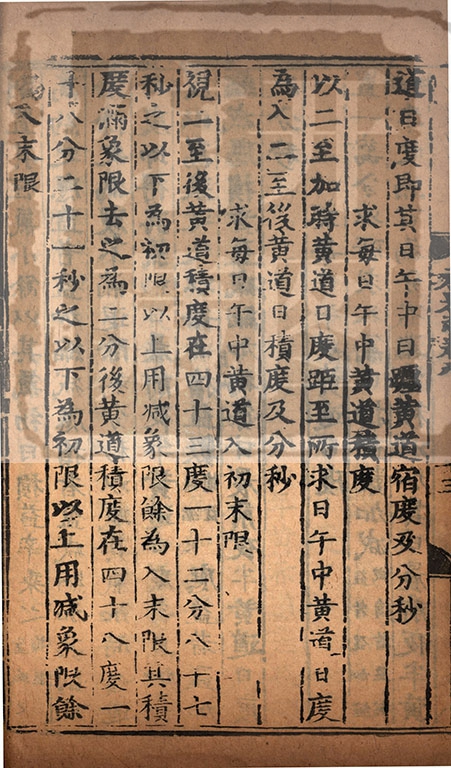 道日度即其日午中日躔黃道宿度及分秒
求每日午中黃道積度
以二至加時黃道日度距至所求日午中黃道日度
為入二至後黃道日積度及分秒
求每日午中黃道入初末限
視二至後黃道積度在四十三度一十二分八十七
秒之以下為初限以上用减象限餘為入末限其積
度滿象限去之為二分後黃道積度在四十八度一
十八分二十一秒之以下為初限以上用减象限餘
為入末限